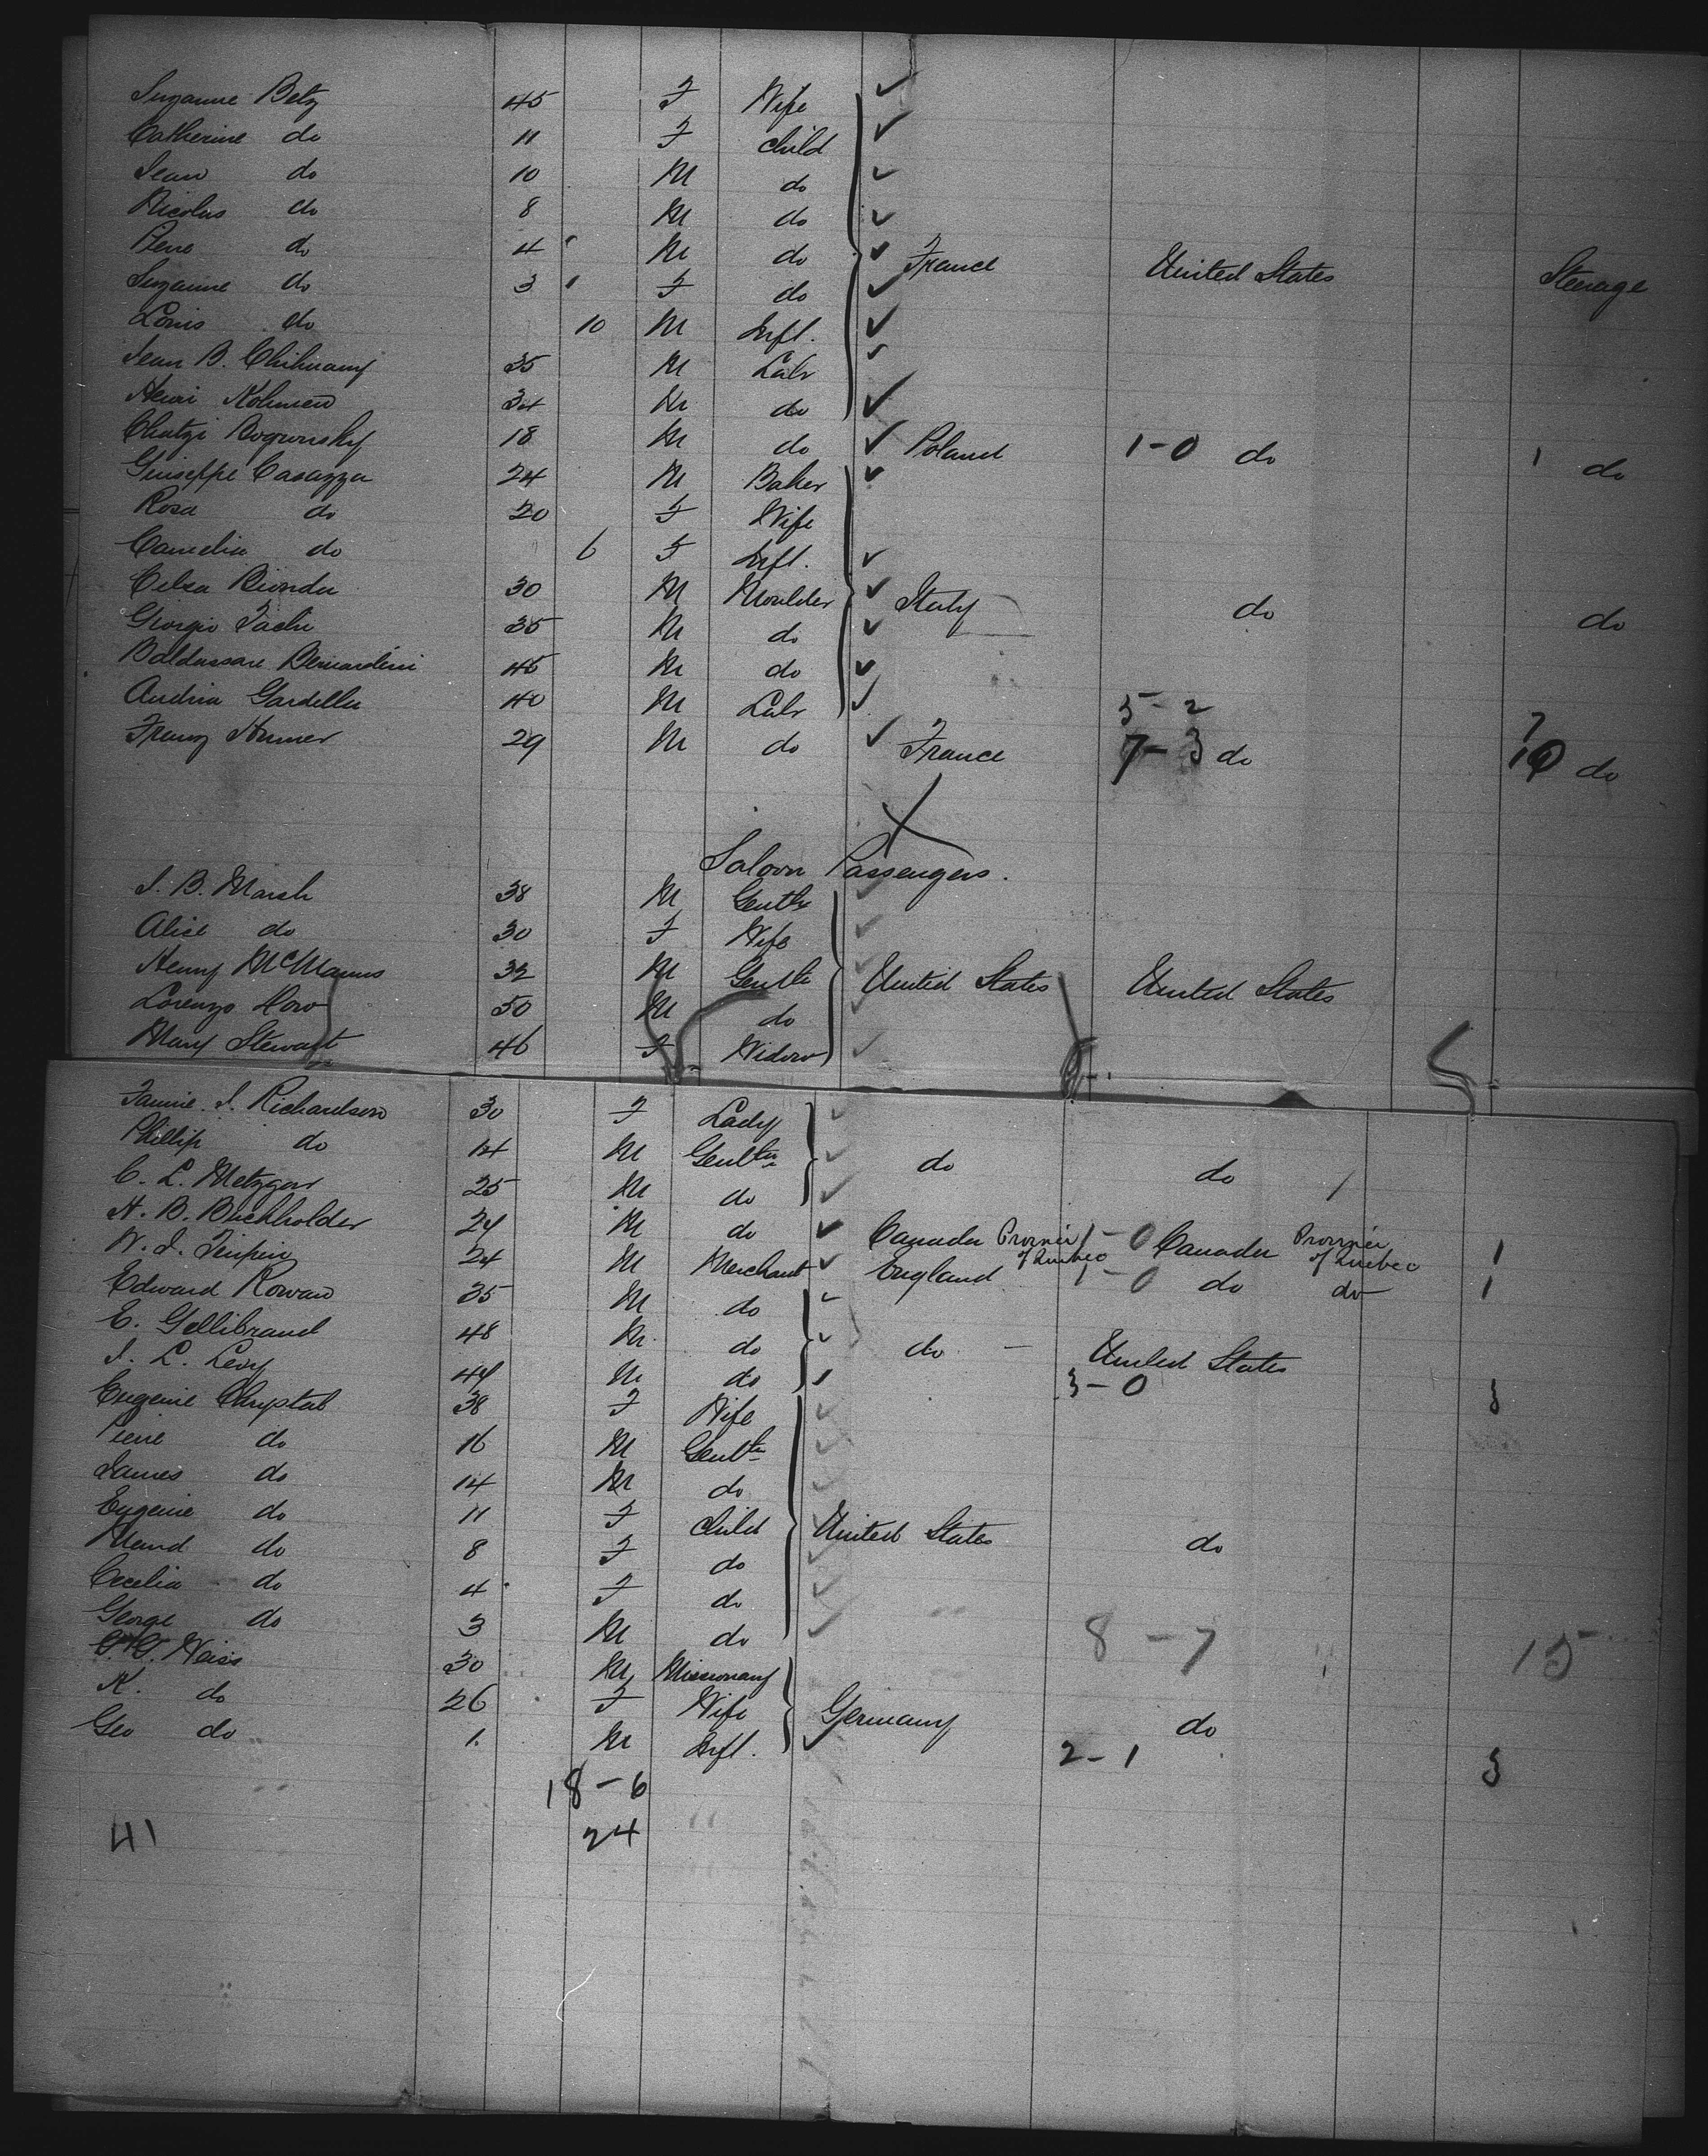 Suzanne Betz 45 F Wife
Catherine do 11 F child
Jean do 10 M do
Nicolas do 8 M do
Pierre do 4 M do France United States Steerage
Suzanne do 3 F do
Louis do 10 M Inft.
Jean B. 35 M Labr
Henri 34 M do
18 M do Poland 1-0 do 1 do
Giuseppe Casazza 24 M Baker
Rosa do 20 F Wife
Camelia do 6 F Inft.
Celsa Bionda 30 M Moulder Italy do do
Giorgio 35 M do
Baldassare Bernardini 45 M do
Andria Gardella 40 M Labr 5-2 7
Franz 29 M do France 7-3 do 10 do
Saloon Passengers.
J. B. Marsh 38 M Gentln
Alice do 30 F Wife
Henry McManus 32 M Gentln United States United States
Lorenzo Dow 50 M do
Mary Stewart 46 F Widow
Fannie J. Richardson 30 F Lady
Phillip do 14 M Gentln do do
C. L. Metzgar 25 M do
H. B. Buchholder 24 M do Canada Province of Quebec 1-0 Canada Province of Quebec 1
W. J. 24 M Merchant England 1-0 do do 1
Edward Rowan 35 M do
E. Gellibrand 48 M do do United States
J. L. Levy 44 M do 3-0 3
Eugenie Chrystal 38 F Wife
Pierre do 16 M Gentln
James do 14 M do
Eugenie do 11 F child United States do
Maud do 8 F do
Cecelia do 4 F do
George do 3 M do 8-7 15
Weiss 30 M Missionary
K. do 26 F Wife Germany do
Geo do 1. M Inft. 2-1 3
18-6
41 24